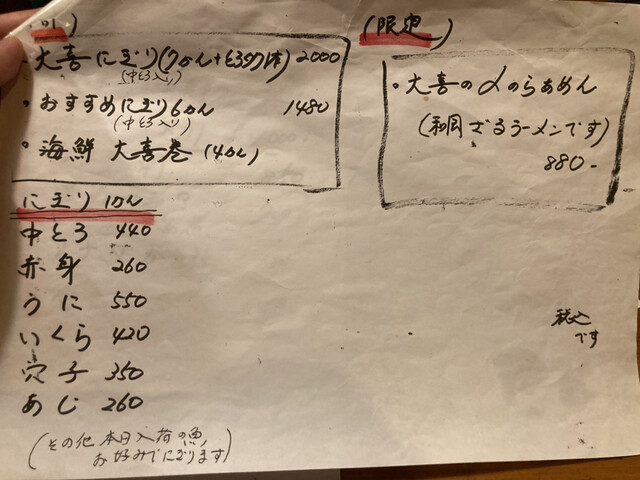 ・大喜にぎり(7かん+とろタク1本) 2000
(中とろ入り)
・おすすめにぎり6かん 1480
(中とろ入り)
・海鮮 大喜巻 (4かん)
にぎり 1かん
中とろ 440
赤身 260
うに 550
いくら 420
穴子 350
あじ 260
(その他 本日入荷の魚、
お好みでにぎります)
(限定)
・大喜の〆のらぁめん
(和風 ざるラーメンです)
880-
税込
です